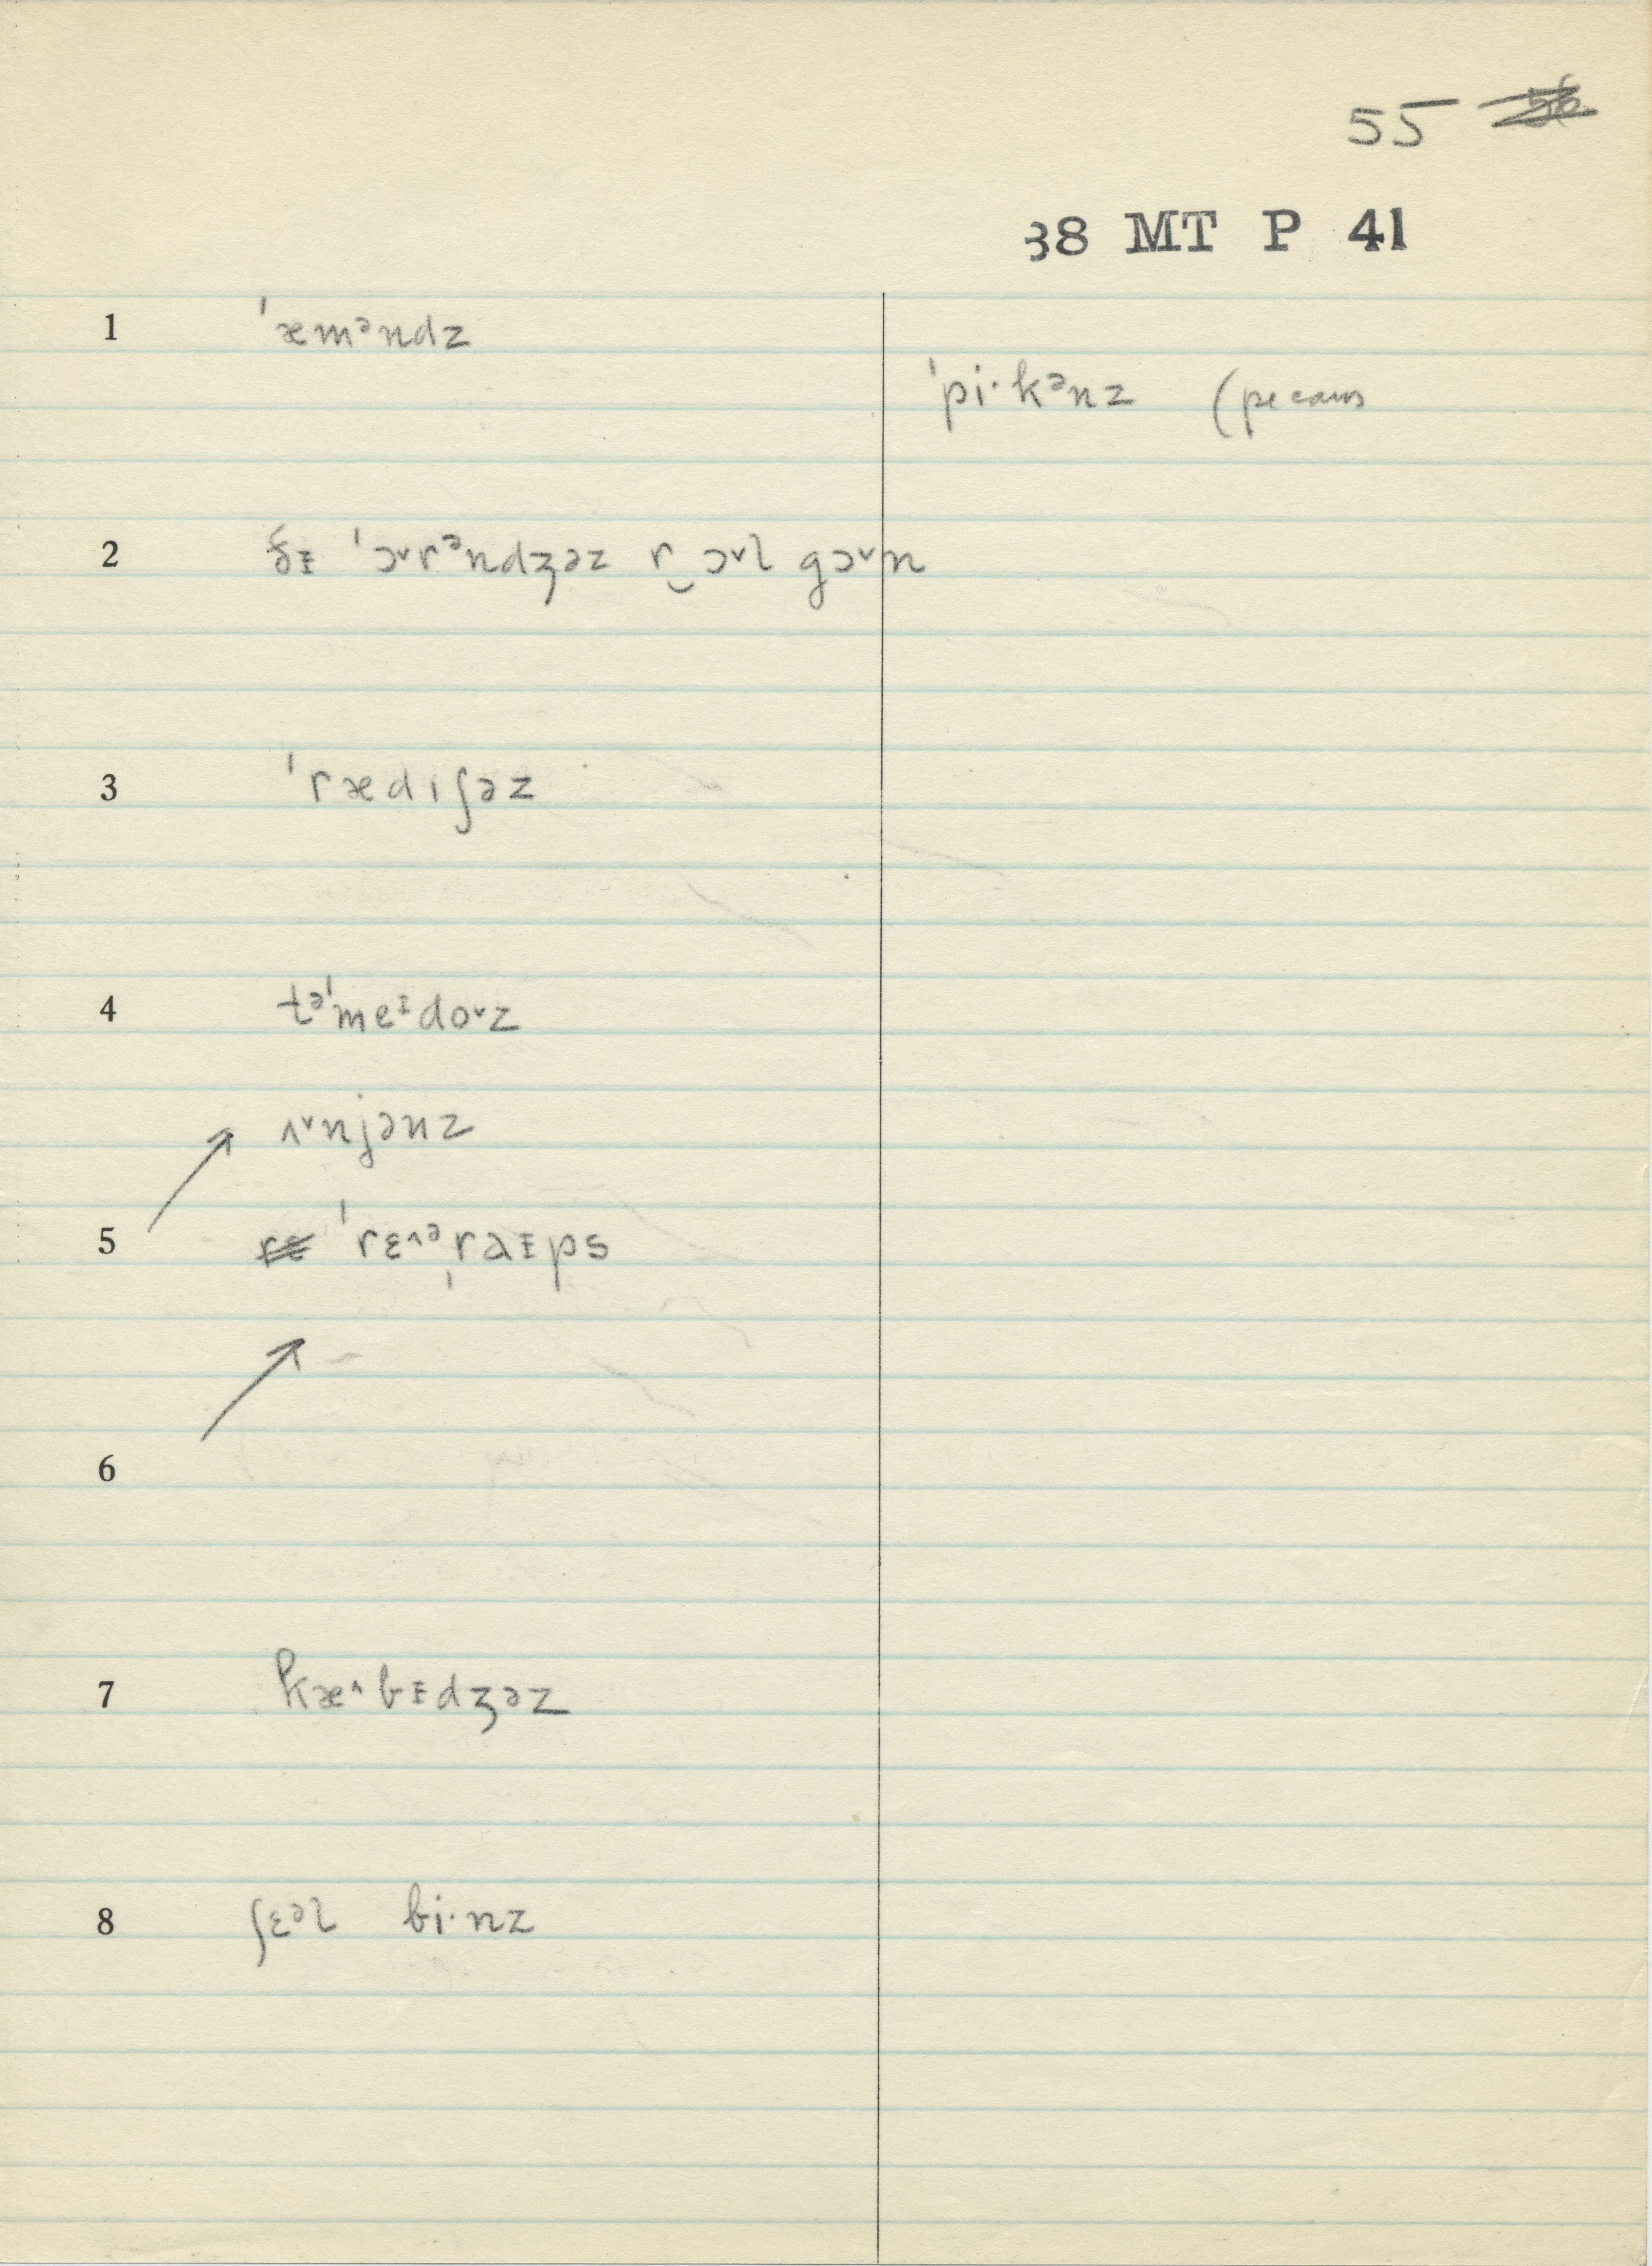 55 56
38 MT P 41
1 ˈæmᵊndz
ˈpi·kᵊnz (pecans
2 ðᵻ ˈɔ˅rᵊndʒəz r‿ɔ˅l gɔ˅n
3 ˈrædɪʃəz
4 təˈmeᵻdo˅z
ʌ˅njənz
5 rɛ ˈrɛ˄ᵊˌraᵻps
6
7 kæ˄bᵻdʒəz
8 ʃɛᵊl bi·nz